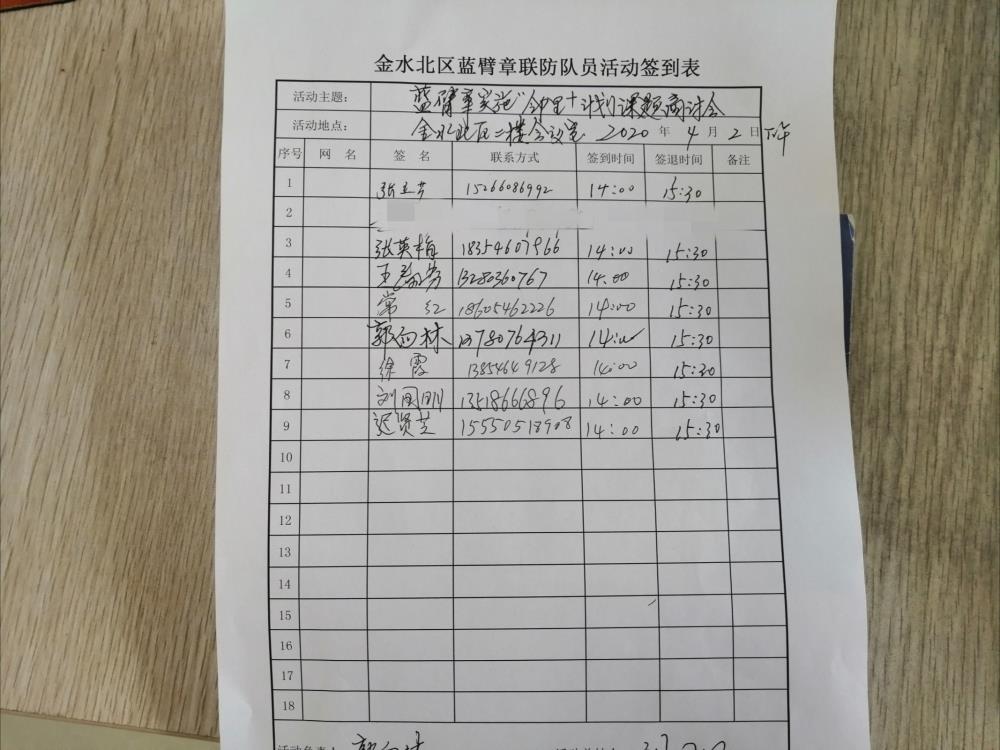 金水北区蓝臂章联防队员活动签到表
活动主题： 蓝臂章实施"邻里+计划课题商讨会
活动地点： 金水北区二楼会议室 2020 年 4 月 2 日 下午
序号 网 名 签 名 联系方式 签到时间 签退时间 备注
1 15266086992 14:00 15:30
2
3 张英梅 18354607966 14:00 15:30
4 13280360767 14:00 15:30
5 常 红 18605462226 14:00 15:30
6 郭向林 13780764311 14:00 15:30
7 徐霞 13854649128 14:00 15:30
8 刘国刚 13518666896 14:00 15:30
9 迟贤芝 15550518908 14:00 15:30
10
11
12
13
14
15
16
17
18